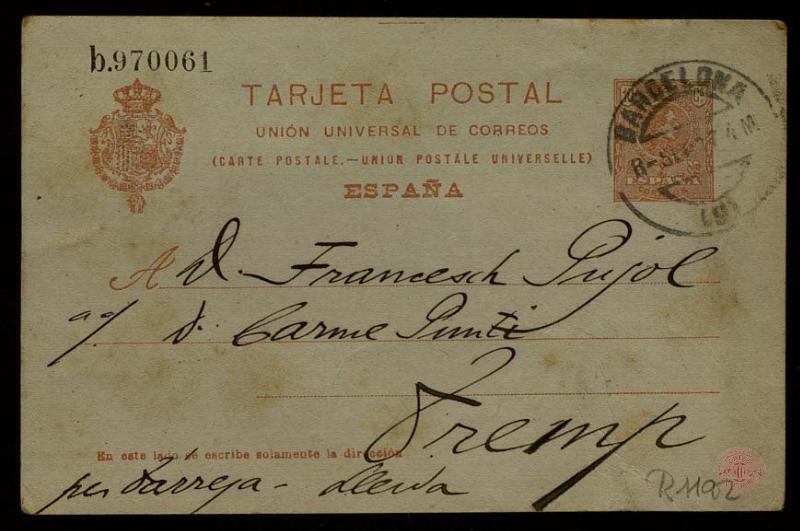 b.970061
TARJETA POSTAL
UNIÓN UNIVERSAL DE CORREOS
(CARTE POSTALE.—UNION POSTALE UNIVERSELLE)
ESPAÑA
BARCELONA
ESPAÑA
A D. Francesch Pujol
a/ d. Carme Punti
Tremp
En este lado se escribe solamente la dirección
per Tarrega - Lleida
R.1192